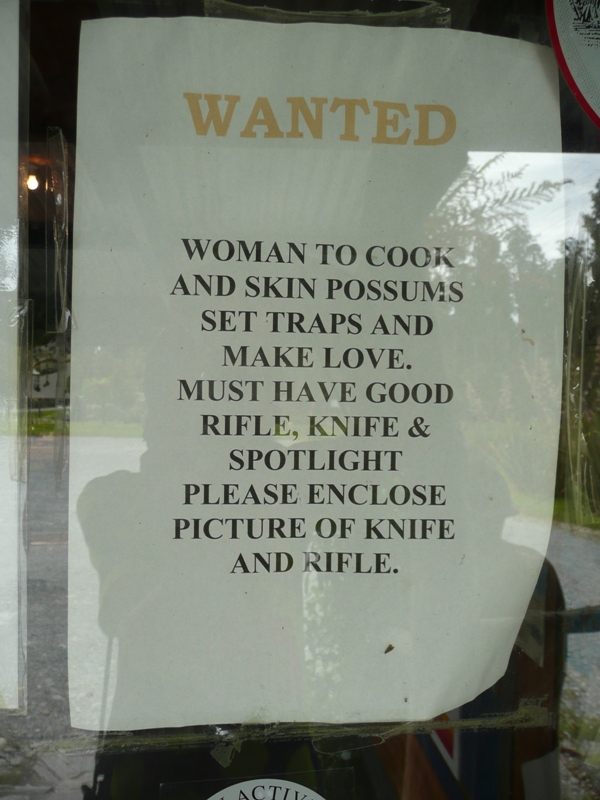 WANTED
WOMAN TO COOK
AND SKIN POSSUMS
SET TRAPS AND
MAKE LOVE.
MUST HAVE GOOD
RIFLE, KNIFE &
SPOTLIGHT
PLEASE ENCLOSE
PICTURE OF KNIFE
AND RIFLE.